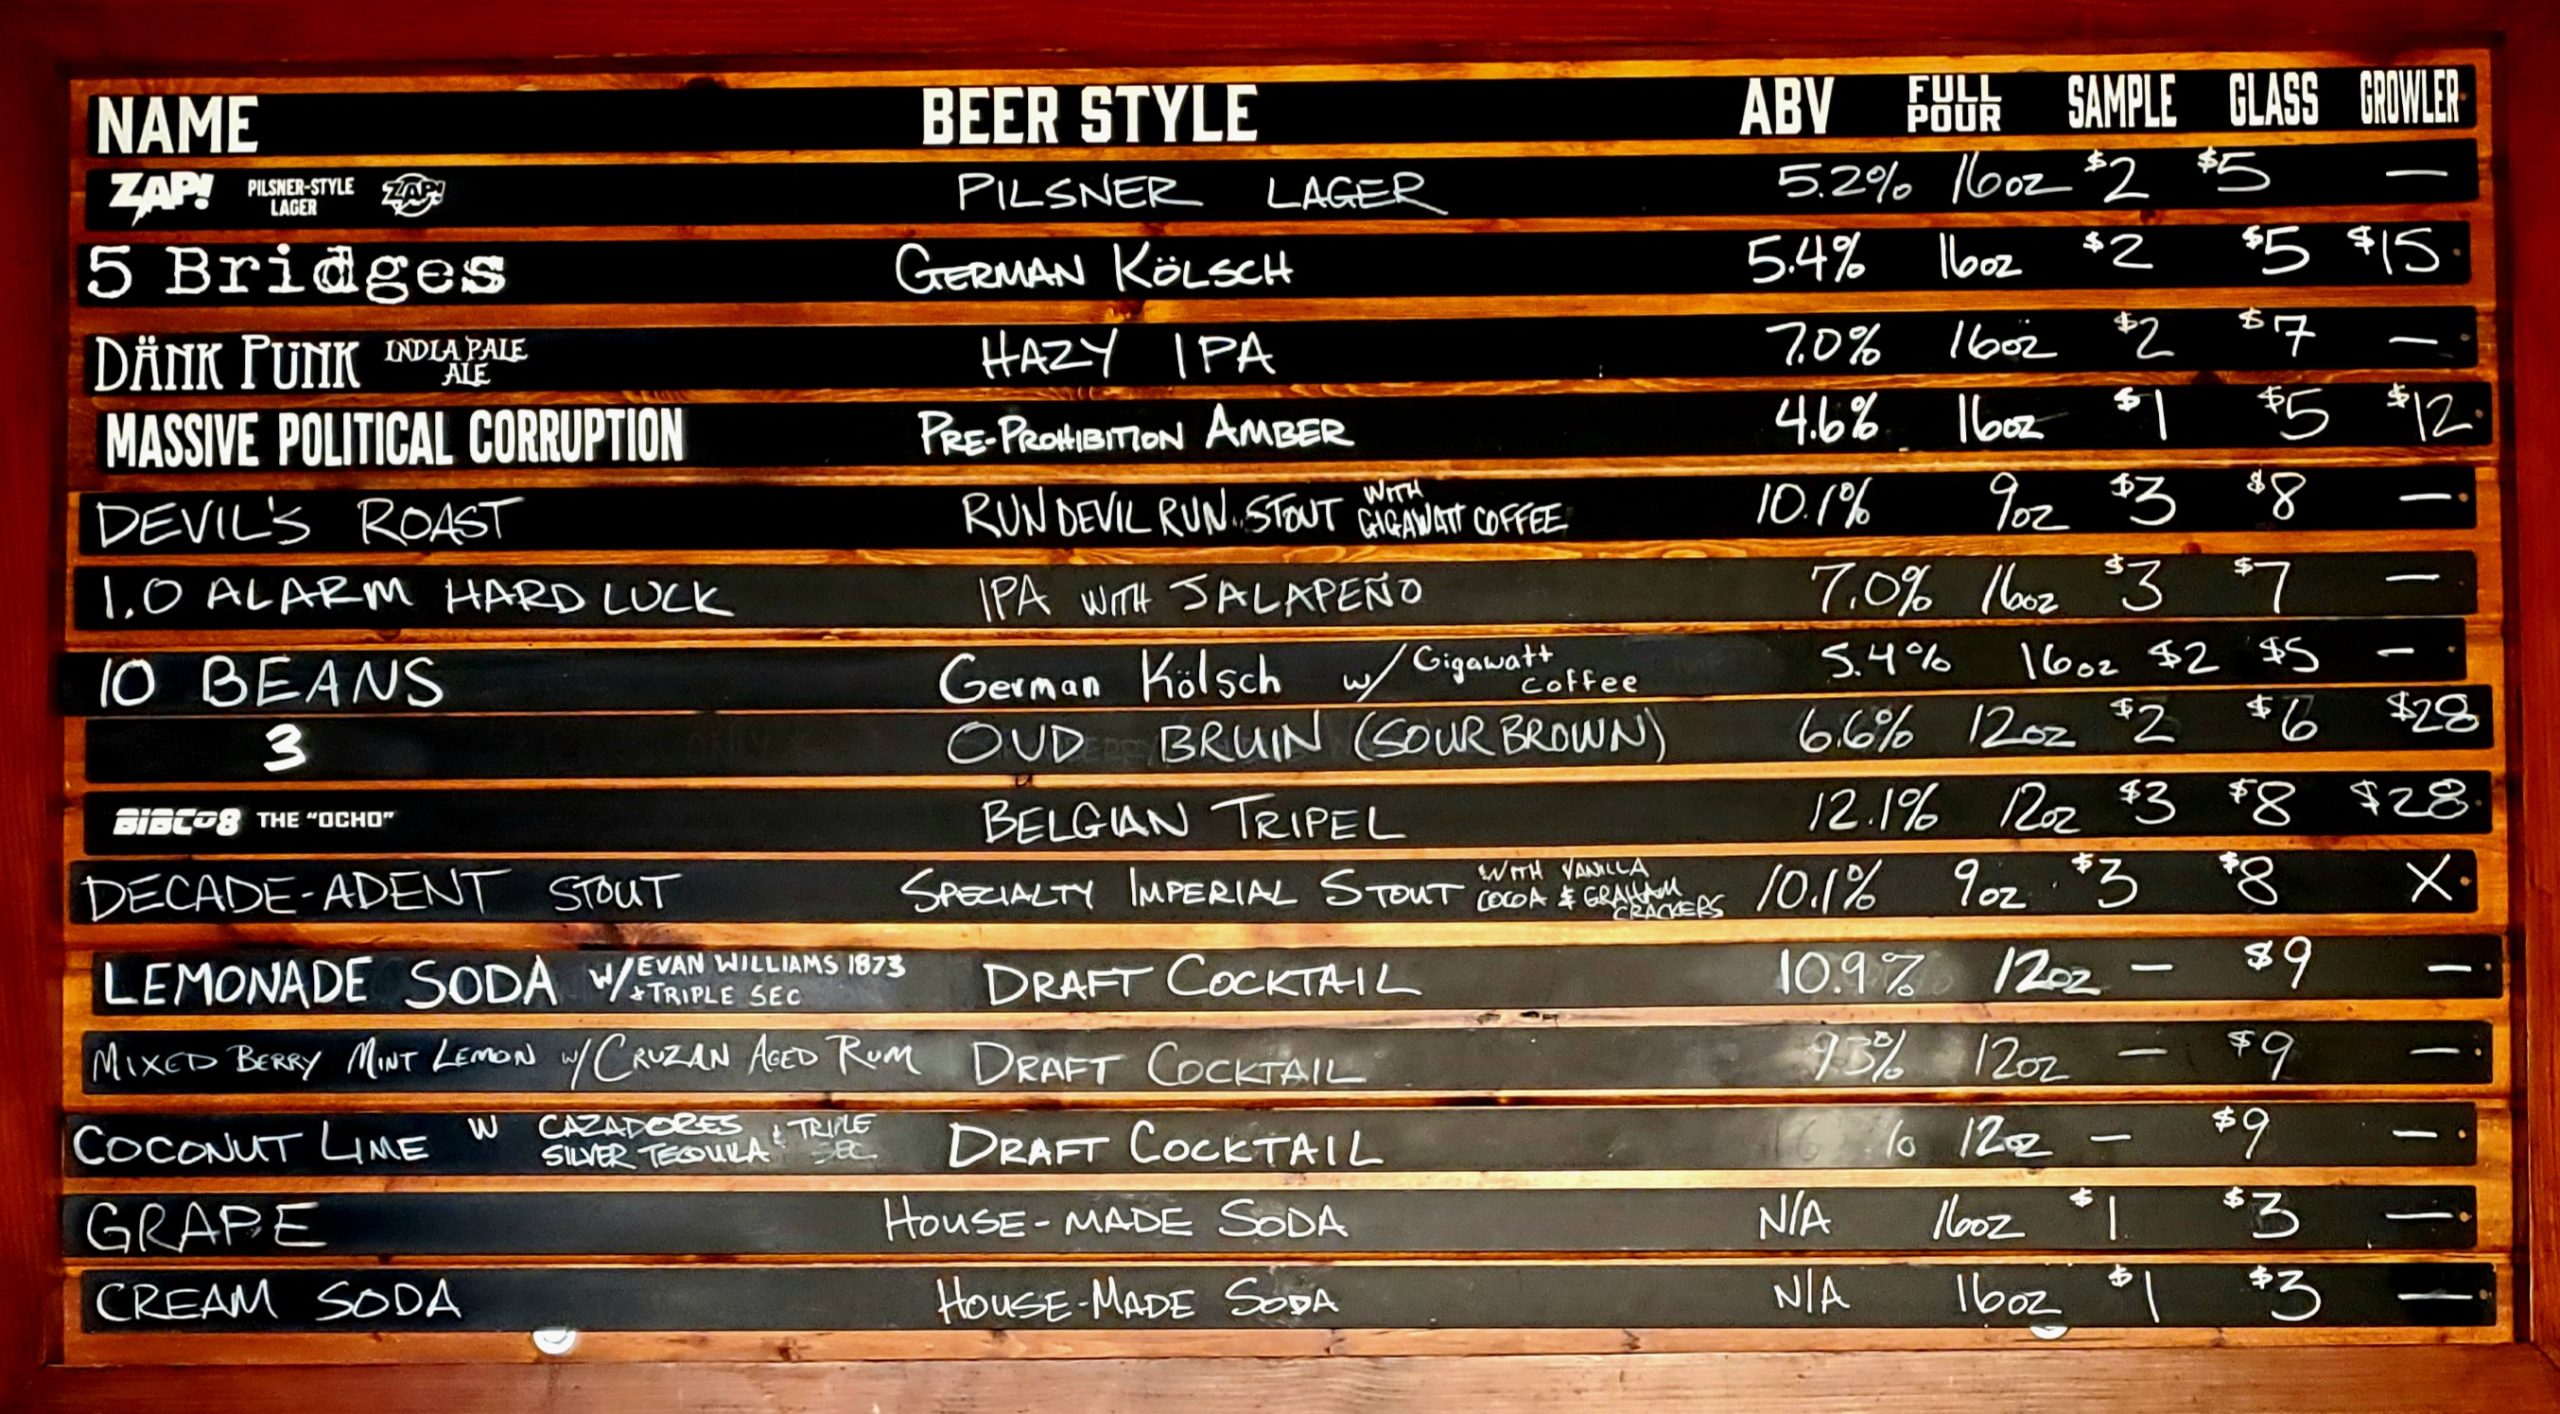 NAME BEER STYLE ABV FULL POUR SAMPLE GLASS GROWLER
ZAP! PILSNER-STYLE LAGER ZAP! PILSNER LAGER 5.2% 16oz $2 $5 —
5 Bridges GERMAN KÖLSCH 5.4% 16oz $2 $5 $15
DÄNK PUNK INDIA PALE ALE HAZY IPA 7.0% 16oz $2 $7 —
MASSIVE POLITICAL CORRUPTION PRE-PROHIBITION AMBER 4.6% 16oz $1 $5 $12
DEVIL'S ROAST RUN DEVIL RUN STOUT WITH GIGAWATT COFFEE 10.1% 9oz $3 $8 —
1.0 ALARM HARD LUCK IPA WITH JALAPEÑO 7.0% 16oz $3 $7 —
10 BEANS German Kölsch w/ Gigawatt coffee 5.4% 16oz $2 $5 —
3 OUD BRUIN (SOUR BROWN) 6.6% 12oz $2 $6 $28
BIBCO8 THE "OCHO" BELGIAN TRIPEL 12.1% 12oz $3 $8 $28
DECADE-ADENT STOUT SPECIALTY IMPERIAL STOUT WITH VANILLA COCOA & GRAHAM CRACKERS 10.1% 9oz $3 $8 X
LEMONADE SODA W/ EVAN WILLIAMS 1873 + TRIPLE SEC DRAFT COCKTAIL 10.9% 12oz — $9 —
MIXED BERRY MINT LEMON W/ CRUZAN AGED RUM DRAFT COCKTAIL 93% 12oz — $9 —
COCONUT LIME W CAZADORES SILVER TEQUILA & TRIPLE SEC DRAFT COCKTAIL 12oz — $9 —
GRAPE HOUSE-MADE SODA N/A 16oz $1 $3 —
CREAM SODA HOUSE-MADE SODA N/A 16oz $1 $3 —